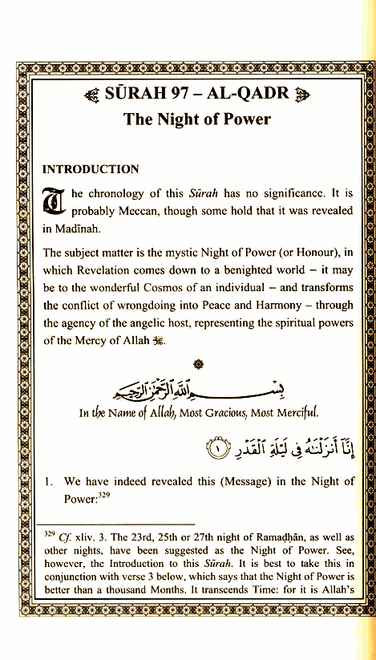 SŪRAH 97 – AL-QADR
The Night of Power
INTRODUCTION
The chronology of this Sūrah has no significance. It is
probably Meccan, though some hold that it was revealed
in Madīnah.
The subject matter is the mystic Night of Power (or Honour), in
which Revelation comes down to a benighted world – it may
be to the wonderful Cosmos of an individual – and transforms
the conflict of wrongdoing into Peace and Harmony – through
the agency of the angelic host, representing the spiritual powers
of the Mercy of Allah ﷻ.
بِسْمِ اللَّهِ الرَّحْمَٰنِ الرَّحِيمِ
In the Name of Allah, Most Gracious, Most Merciful.
إِنَّا أَنزَلْنَاهُ فِي لَيْلَةِ الْقَدْرِ ۝١
1. We have indeed revealed this (Message) in the Night of
Power:³²⁹
³²⁹ Cf. xliv. 3. The 23rd, 25th or 27th night of Ramaḍhān, as well as
other nights, have been suggested as the Night of Power. See,
however, the Introduction to this Sūrah. It is best to take this in
conjunction with verse 3 below, which says that the Night of Power is
better than a thousand Months. It transcends Time: for it is Allah's